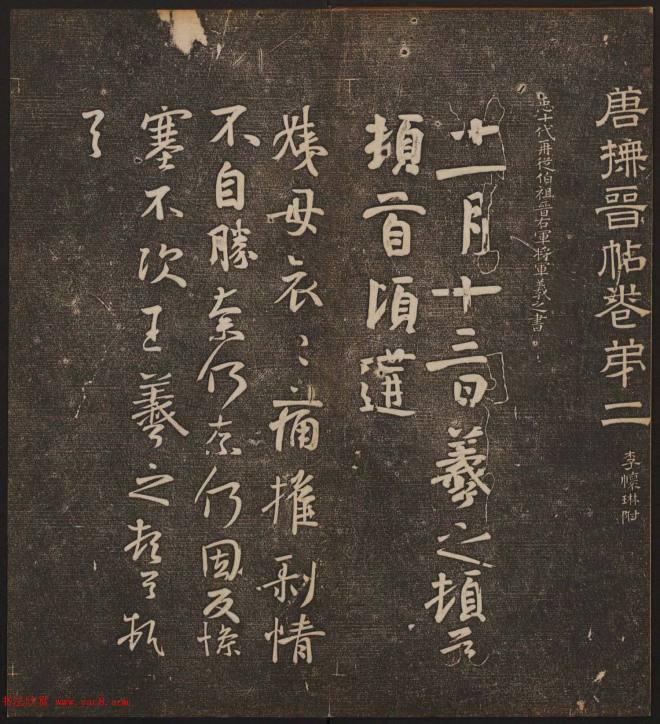 唐撫晉帖卷弟二
李懷琳附
臣十代再從伯祖晉右軍將軍羲之書
十一月十三日羲之頓首
頓首頃遘
姨母哀〻痛摧剥情
不自勝奈何奈何因反慘
塞不次王羲之頓首頓
首
书法欣赏 www.yac8.com